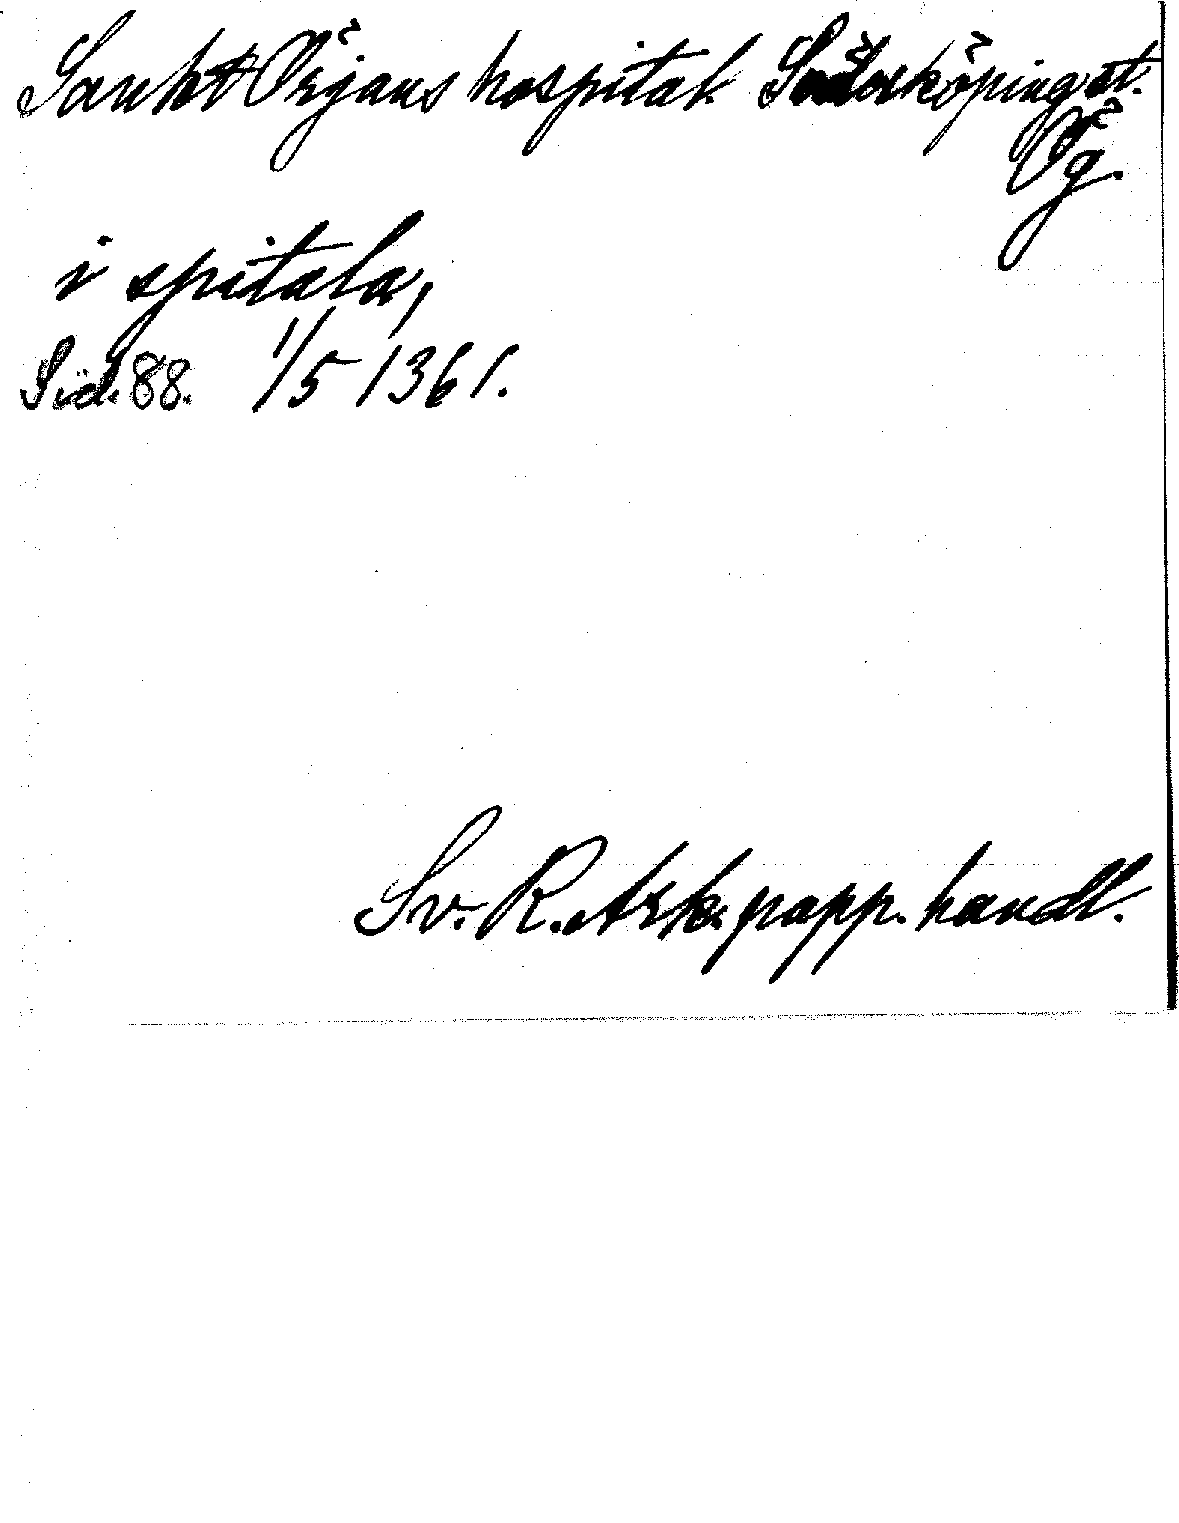 Sankt Örjans hospital Söderköping st.
Ög.
i spitala,
Sid. 88. 1/5 1361.
Sv. R. Ark. papp. handl.